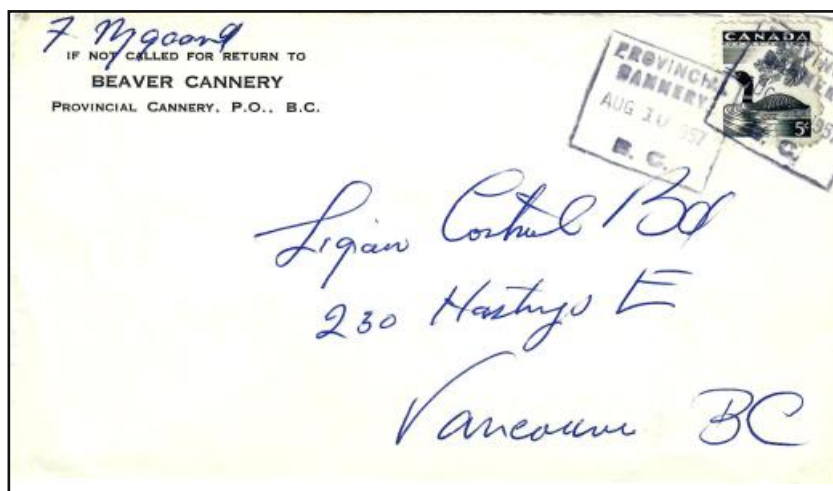 IF NOT CALLED FOR RETURN TO
BEAVER CANNERY
PROVINCIAL CANNERY, P.O., B.C.
PROVINCIAL
CANNERY
AUG 10 1957
B. C.
CANADA
5¢
Control Bd
230 Hastings E
Vancouver BC